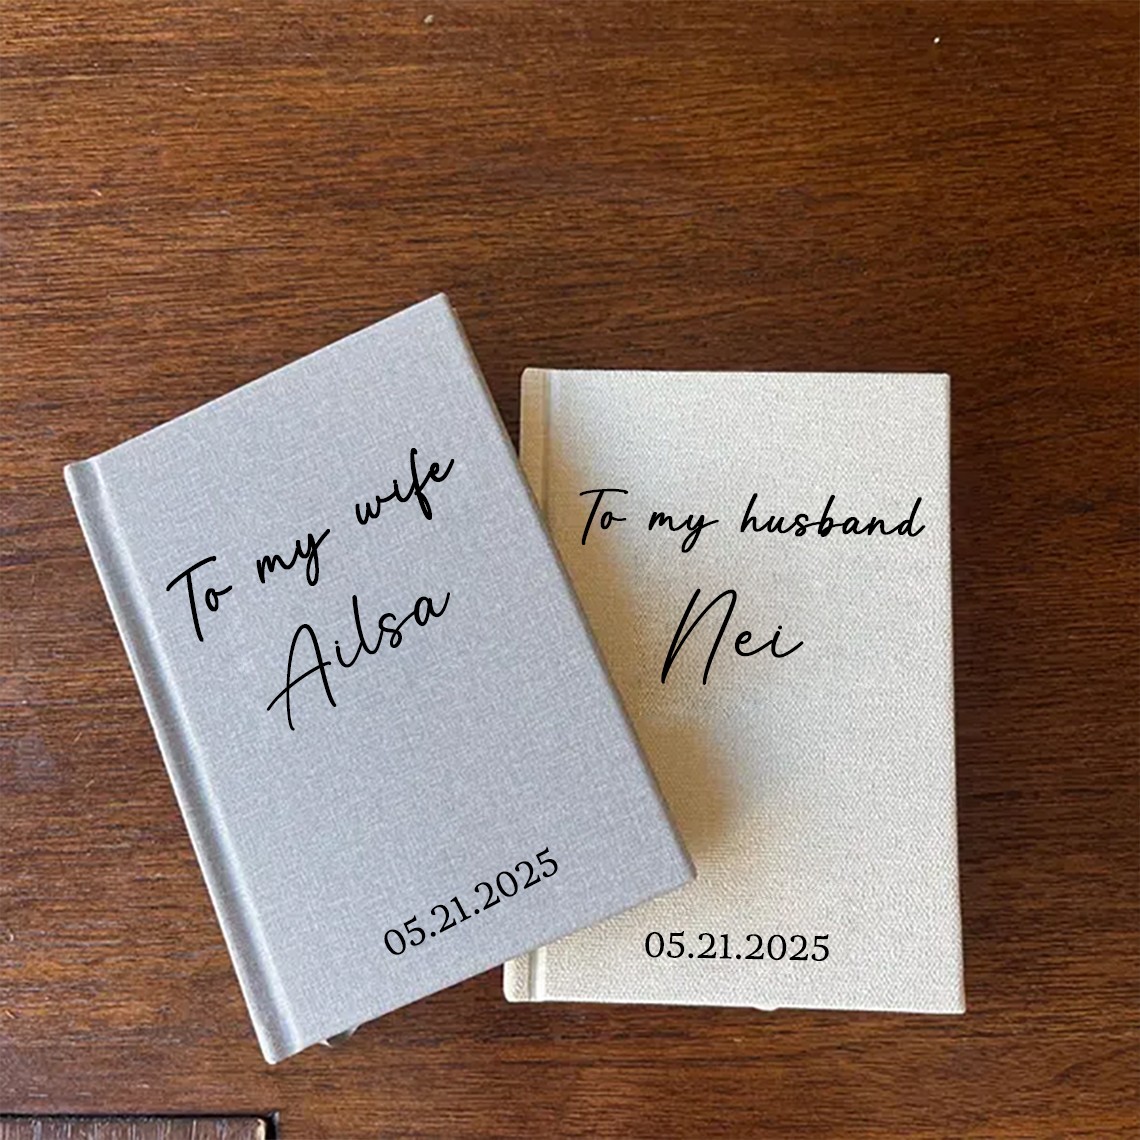 To my wife
Ailsa
05.21.2025
To my husband
Nei
05.21.2025